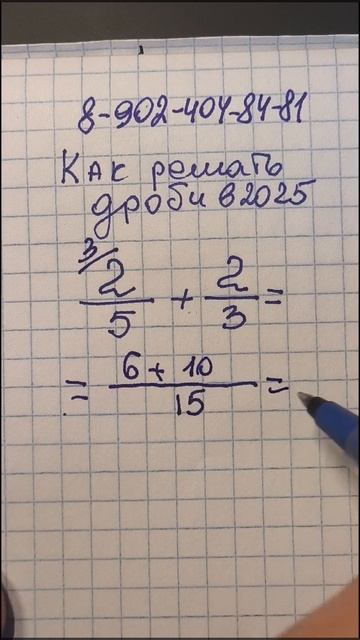 8-902-404-84-81
Как решать
дроби в 2025
3/2/5 + 2/3 =
= 6 + 10/15 =